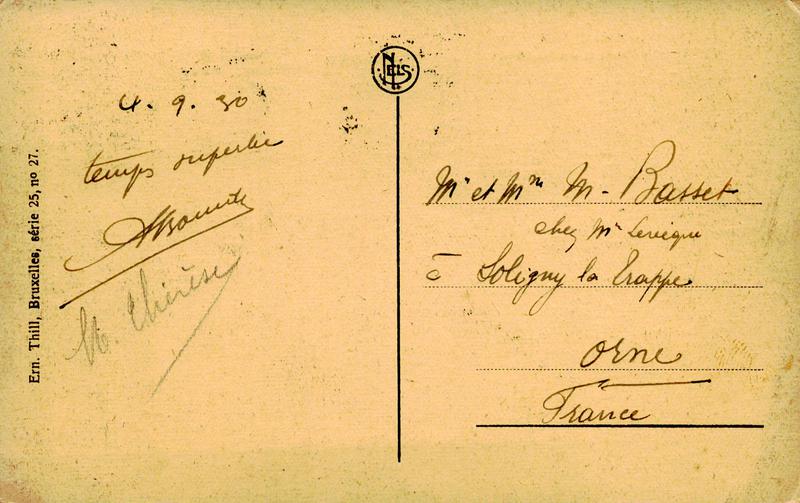 NELS
4. 9. 30
temps superbe
M. Thérèse
Ern. Thill, Bruxelles, série 25, nº 27.
Mr et Mme M. Basset
chez Mr Leveque
à Soligny la Trappe
Orne
France